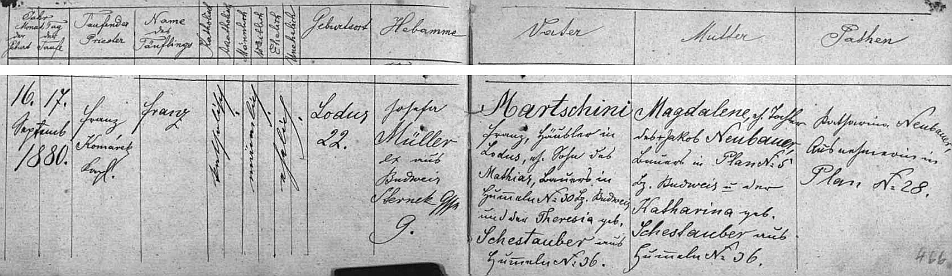 Jahr
Monat Tag
der
Geburt Taufe
Taufender
Priester
Name
des
Täuflings
Katholisch
Männlich
Weiblich
Ehelich
Unehelich
Geburtsort
Hebamme
Vater
Mutter
Pathen
16. 17.
Septemb
1880.
Franz
Komárek
Kapl.
Franz
katholisch
männlich
ehelich
Lodus
22.
Josefa
Müller
ex aus
Budweis
Sternek Gsse
9.
Martschini
Franz, Häusler in
Lodus, eh. Sohn des
Mathias, Bauers in
Hummeln No 30 Bz. Budweis
und der Theresia geb.
Schestauber aus
Hummeln No 36.
Magdalene, eh. Tochter
des Jakob Neubauer,
Bauers in Plan No 5
Bz. Budweis u der
Katharina geb.
Schestauber aus
Hummeln No 36.
Katharina Neubauer,
Ausnehmerin in
Plan No 28.